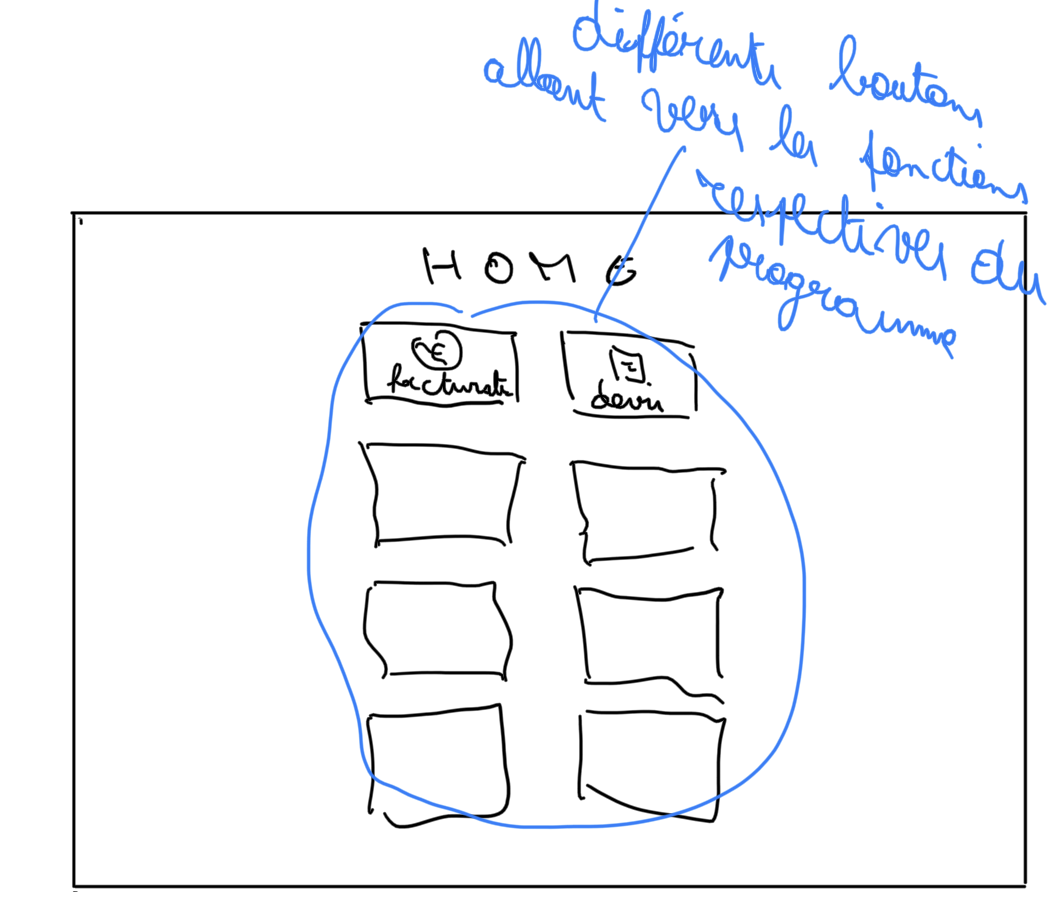 différents boutons
allant vers les fonctions
respectives du
programme
HOME
€
facturate
devis